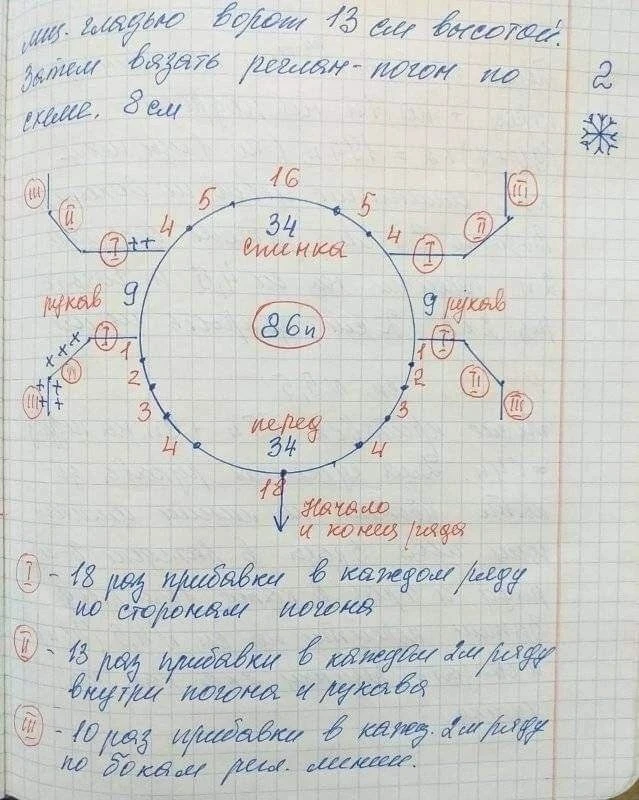 лиц. гладью ворот 13 см высотой.
Затем вязать реглан-погон по
схеме. 8 см
2
16
5 5
4 34 4
III II I ++ спинка I II III
рукав 9 86п 9 рукав
x x x I 1 1 I
II 2 2 II
III 3 перед 3 III
4 34 4
18
Начало
и конец ряда
I - 18 раз прибавки в каждом ряду
по сторонам погона
II - 13 раз прибавки в каждом 2м ряду
внутри погона и рукава
III - 10 раз прибавки в кажд. 2м ряду
по бокам регл. линии.